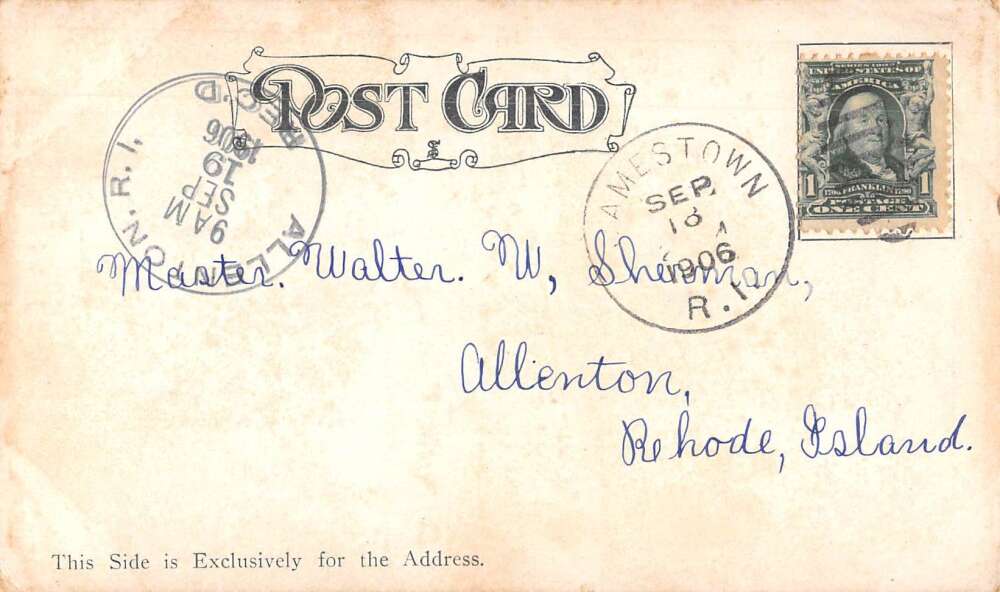 POST CARD
ALLENTON, R. I.
REC'D
9 AM
SEP
19
1906
AMESTOWN
SEP
18
1906
R. I.
SERIES 1902
UNITED STATES OF
AMERICA
1 FRANKLIN 1
POSTAGE
ONE CENT
Master. Walter. W, Sherman,
Allenton,
Rehode, Island.
This Side is Exclusively for the Address.